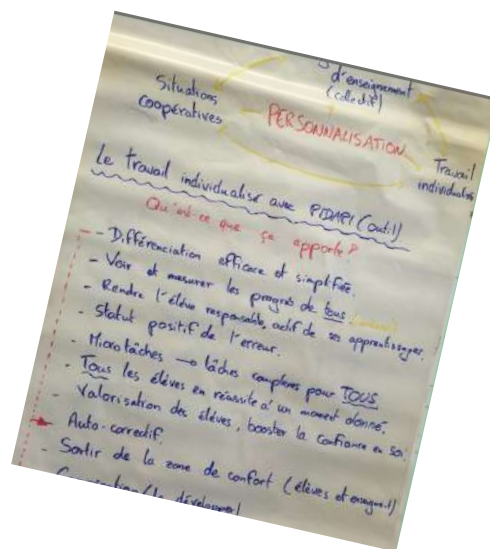 d'enseignement
(collectif)
Situations
coopératives
PERSONNALISATION
Travail
individualisé
Le travail individualisé avec PIDAPI (outil)
Qu'est-ce que ça apporte?
- Différenciation efficace et simplifiée.
- Voir et mesurer les progrès de tous
- Rendre l'élève responsable, actif de ses apprentissages.
- Statut positif de l'erreur.
- Microtâches → tâches complexes pour TOUS
- Tous les élèves en réussite à un moment donné.
- Valorisation des élèves, booster la confiance en soi.
- Auto-correctif.
- Sortir de la zone de confort (élèves et enseignant)